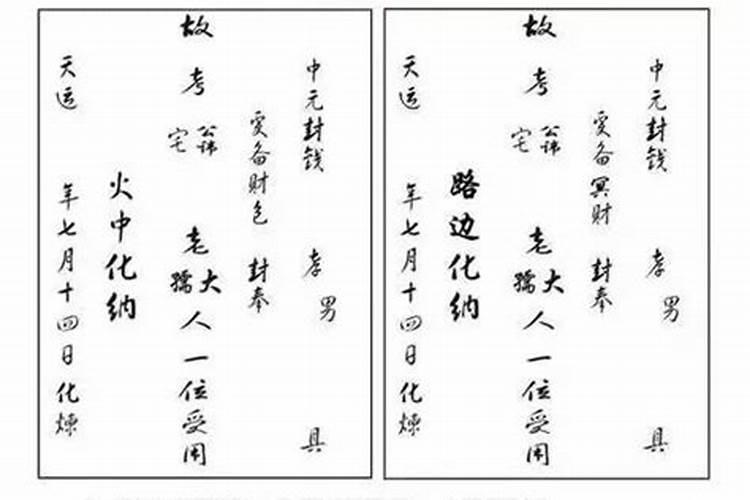 中元封钱 孝男 具
爰备财包 封奉
故考公讳老大人一位受用
宅孺
火中化纳
天运 年七月十四日化炼
中元封钱 孝男 具
爰备冥财 封奉
故考公讳老大人一位受用
宅孺
路边化纳
天运 年七月十四日化炼